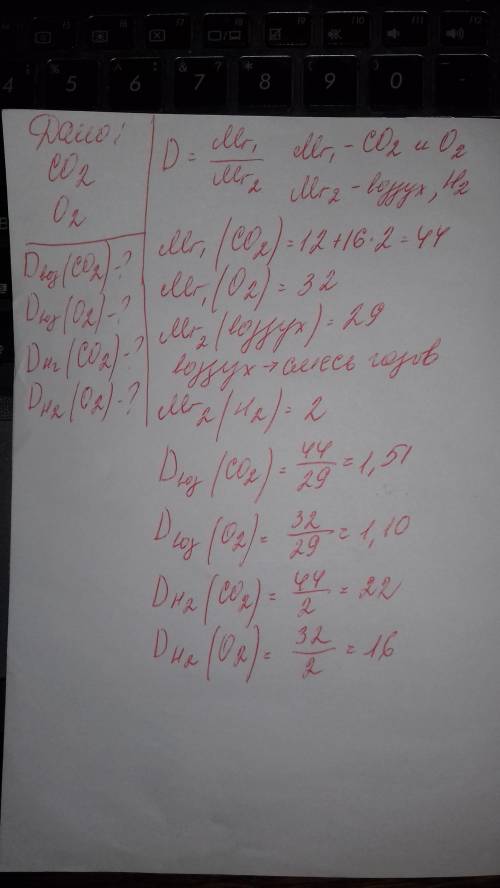 F5 F6 F7 F8 F9 F10 F11 F12
4 % 5 ^ 6 & 7 * 8 ( 9 ) 0 -
Дано:
CO2
O2
Dвоз(CO2)-?
Dвоз(O2)-?
DH2(CO2)-?
DH2(O2)-?
D = Mr1/Mr2 Mr1 - CO2 и O2
Mr2 - воздух, H2
Mr1(CO2) = 12+16·2 = 44
Mr1(O2) = 32
Mr2(воздух) = 29
воздух → смесь газов
Mr2(H2) = 2
Dвоз(CO2) = 44/29 = 1,51
Dвоз(O2) = 32/29 = 1,10
DH2(CO2) = 44/2 = 22
DH2(O2) = 32/2 = 16